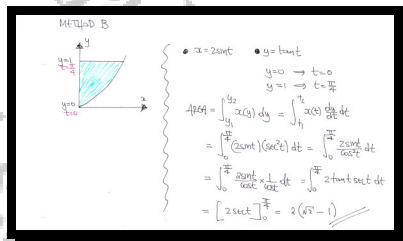 METHOD B
y
y=1
t=π/4
y=0
t=0
x
• x = 2sint • y = tant
y=0 → t=0
y=1 → t=π/4
AREA = ∫_{y₁}^{y₂} x(y) dy = ∫_{t₁}^{t₂} x(t) dy/dt dt
= ∫_0^{π/4} (2sint)(sec²t) dt = ∫_0^{π/4} 2sint/cos²t dt
= ∫_0^{π/4} 2sint/cost × 1/cost dt = ∫_0^{π/4} 2tant sect dt
= [2sect]_0^{π/4} = 2(√2 − 1)